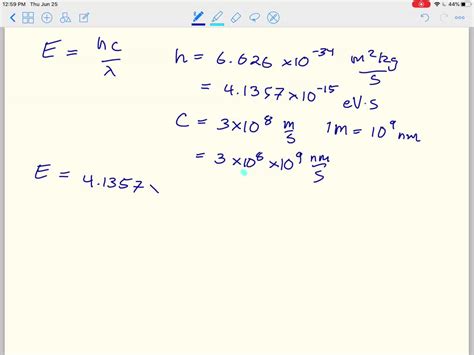 12:59 PM Thu Jun 25
44%
E = hc/λ
h = 6.626 ×10⁻³⁴ m²kg/s
= 4.1357 ×10⁻¹⁵ eV·s
C = 3×10⁸ m/s 1m = 10⁹ nm
= 3 ×10⁸ ×10⁹ nm/s
E = 4.1357 \